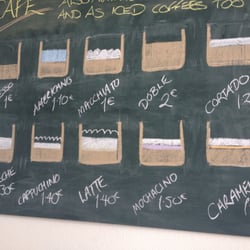 CAFE
AND AS ICED COFFEES TOO
AMERICANO
MACCHIATO
DOBLE
CORTADO
1€
1'10€
1€
2€
CAPPUCHINO
LATTE
MOCHACINO
CARAME
1'40€
1'40€
1'50€